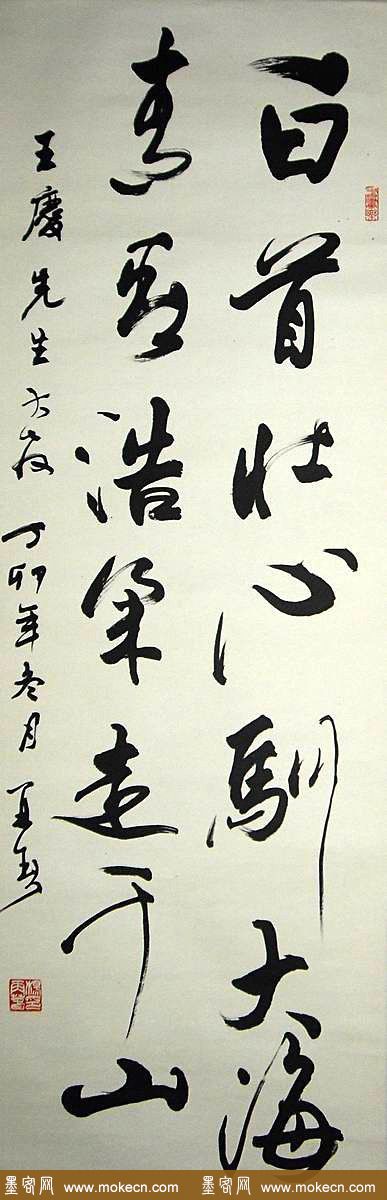 白首壮心馴大海
青春浩氣走千山
王慶先生
丁卯年冬月
墨客网 www.mokecn.com 墨客网 www.mokecn.com